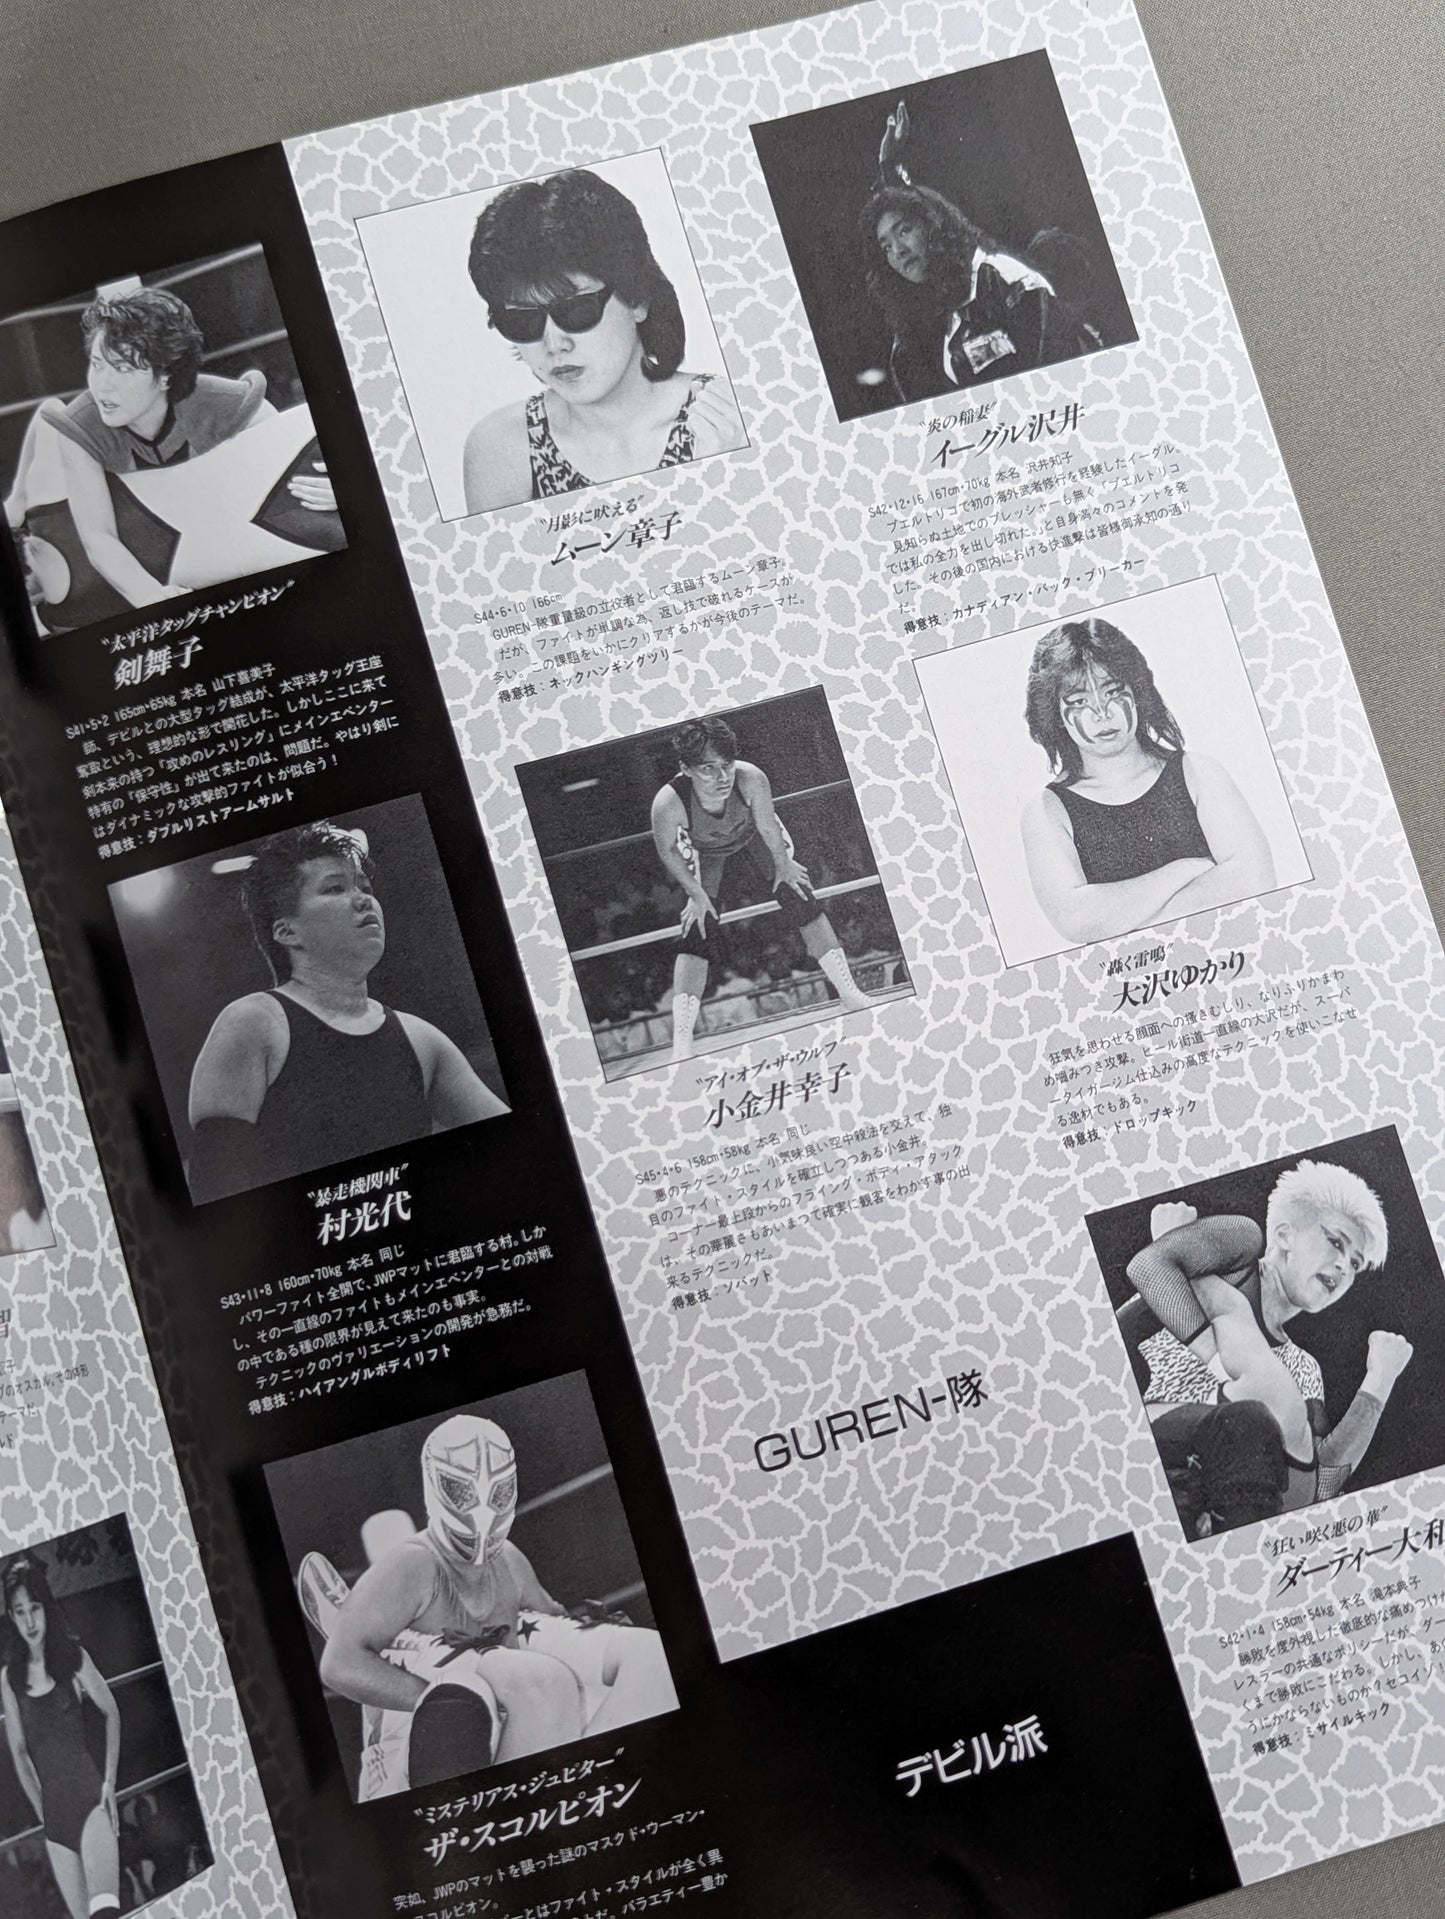 〝太平洋タッグチャンピオン〟
剣舞子
S41・5・2 165cm・65kg 本名 山下喜美子
師、デビルとの大型タッグ結成が、太平洋タッグ王座
奪取という、理想的な形で開花した。しかしここに来て
剣本来の持つ「攻めのレスリング」にメインエベンター
特有の「保守性」が出て来たのは、問題だ。やはり剣に
はダイナミックな攻撃的ファイトが似合う！
得意技：ダブルリストアームサルト
〝暴走機関車〟
村光代
S43・11・8 160cm・70kg 本名 同じ
パワーファイト全開で、JWPマットに君臨する村。しか
し、その一直線のファイトもメインエベンターとの対戦
の中である種の限界が見えて来たのも事実。
テクニックのヴァリエーションの開発が急務だ。
得意技：ハイアングルボディリフト
〝ミステリアス・ジュピター〟
ザ・スコルピオン
突如、JWPのマットを襲った謎のマスクド・ウーマン・
スコルピオン。
とはファイト・スタイルが全く異
だ。バラエティー豊か
〝月影に吠える〟
ムーン章子
S44・6・10 166cm
GUREN-隊重量級の立役者として君臨するムーン章子。
だが、ファイトが単調な為、返し技で破れるケースが
多い。この課題をいかにクリアするかが今後のテーマだ。
得意技：ネックハンギングツリー
〝炎の稲妻〟
イーグル沢井
S42・12・16 167cm・70kg 本名 沢井知子
プエルトリコで初の海外武者修行を経験したイーグル。
見知らぬ土地でのプレッシャーも無く「プエルトリコ
では私の全力を出し切れた。」と自身満々のコメントを発
した。その後の国内における快進撃は皆様御承知の通り
だ。
得意技：カナディアン・バック・ブリーカー
〝アイ・オブ・ザ・ウルフ〟
小金井幸子
S45・4・6 158cm・58kg 本名 同じ
悪のテクニックに、小気味良い空中殺法を交えて、独
自のファイト・スタイルを確立しつつある小金井。
コーナー最上段からのフライング・ボディ・アタック
は、その華麗さもあいまつて確実に観客をわかす事の出
来るテクニックだ。
得意技：ソバット
〝轟く雷鳴〟
大沢ゆかり
狂気を思わせる顔面への掻きむしり、なりふりかまわ
め噛みつき攻撃。ヒール街道一直線の大沢だが、スーパ
ータイガージム仕込みの高度なテクニックを使いこなせ
る逸材でもある。
得意技：ドロップキック
GUREN-隊
〝狂い咲く悪の華〟
ダーティー大和
S42・1・4 158cm・54kg 本名 滝本典子
勝敗を度外視した徹底的な痛めつけが
レスラーの共通なポリシーだが、ダー
くまで勝敗にこだわる。しかし、あ
うにかならないものか？セコイゾ
得意技：ミサイルキック
デビル派